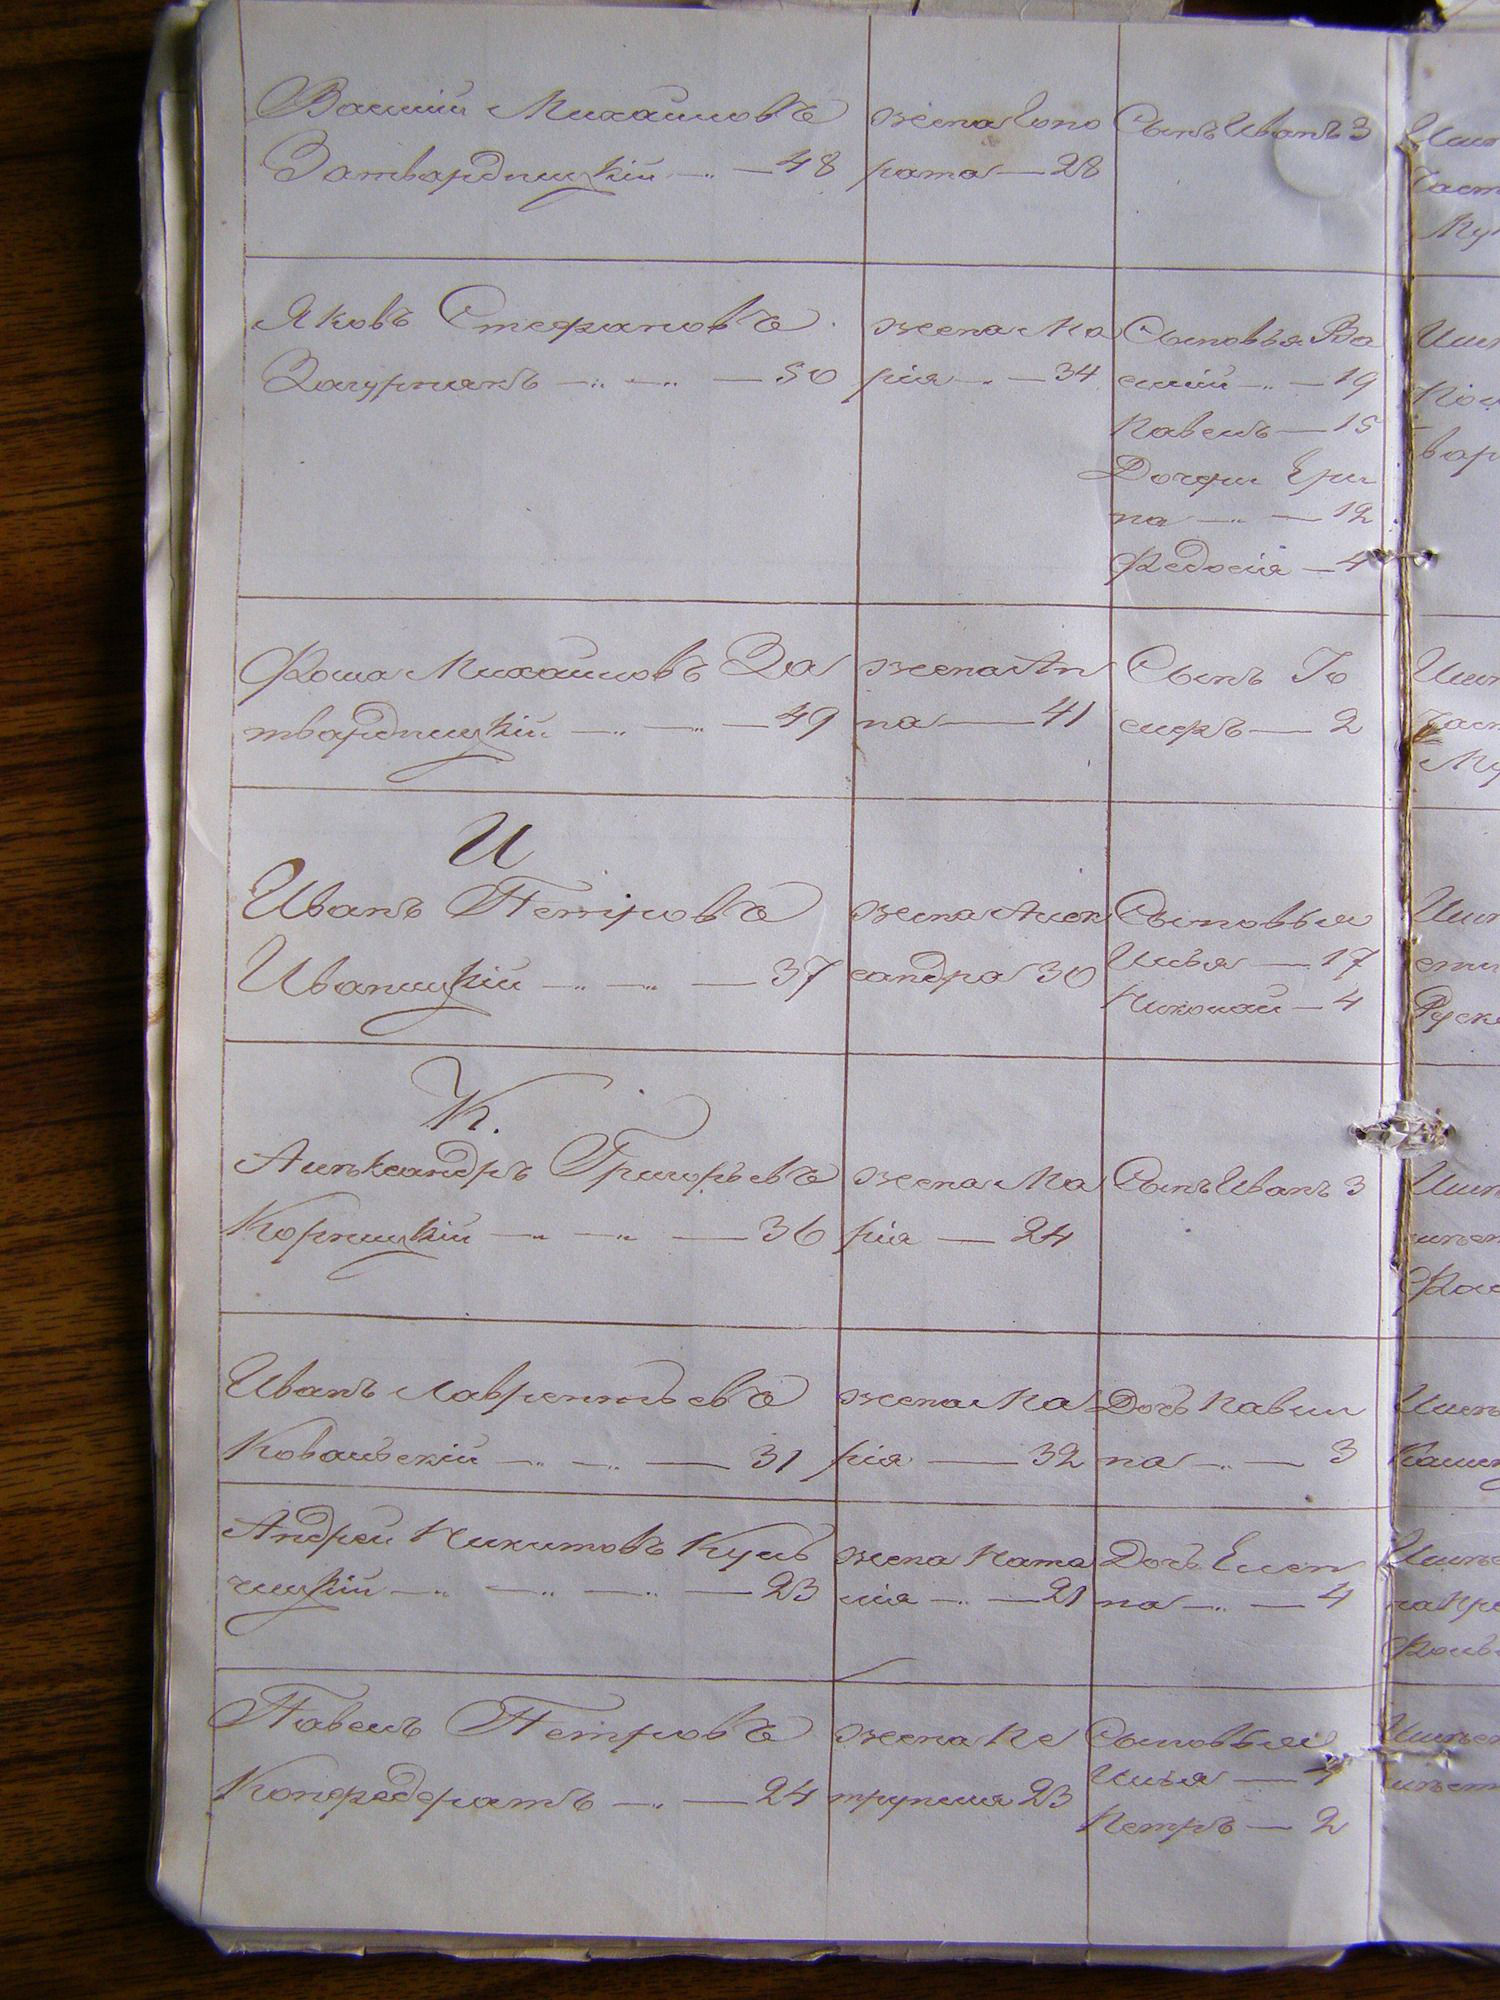 Василій Михайловъ
Затвардницкій — 48
жена Гоно
рата — 28
Сынъ Иванъ 3
Яковъ Стефановъ
Загурнякъ — 50
жена Ма
рія — 34
Сыновья Ва
силій — 19
Павелъ — 15
Дочери Ери
на — 12
Федосія — 4
Фома Михайловъ За
твардницкій — 49
жена Ан
на — 41
Сынъ Іо
сифъ — 2
И
Иванъ Петровъ
Иваницкій — 37
жена Алек
сандра 30
Сыновья
Илья — 17
Николай — 4
К.
Александръ Григорьевъ
Корницкій — 36
жена Ма
рія — 24
Сынъ Иванъ 3
Иванъ Лаврентьевъ
Ковальскій — 31
жена Ма
рія — 32
Дочь Павли
на — 3
Андрей Никитовъ Куль
чицкій — 23
жена Ната
лія — 21
Дочь Елен
на — 4
Павелъ Петровъ
Конфедератъ — 24
жена Пе
трунеля 23
Сыновья
Илья —
Петръ — 2